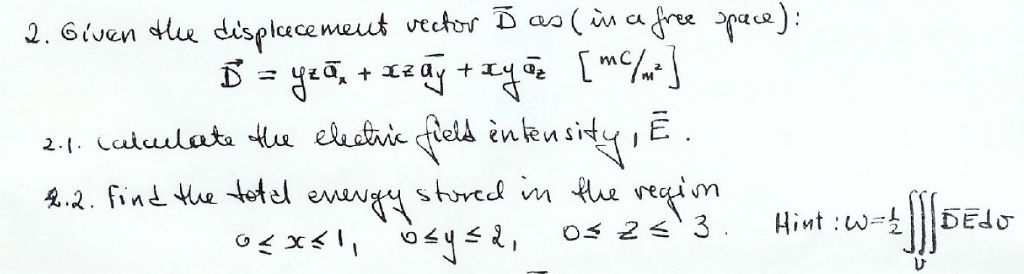 2. Given the displacement vector D̄ as (in a free space):
D̄ = yz āx + xz āy + xy āz [mC/m²]
2.1. Calculate the electric field intensity, Ē.
2.2. Find the total energy stored in the region
0 ≤ x ≤ 1, 0 ≤ y ≤ 2, 0 ≤ z ≤ 3. Hint: w = ½ ∭ D̄Ēdv
v